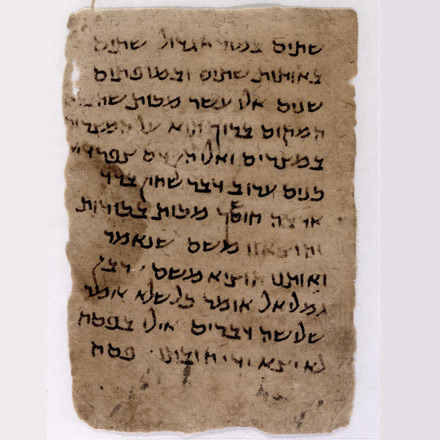 שתים במורא גדול שתים
באותות שתים ובמופתים
שנים אלו עשר מכות שהביא
המקום ברוך הוא על המצריים
במצרים ואלו הן דם צפרדע
כנים ערוב דבר שחין ברד
ארבה חושך מכות בכורות
משם שנאמר
ואותנו הוציא משם רבן
גמליאל אומר כל שלא אומר
שלושה דברים אילו בפסח
לא יצא ידי חובתו פסח